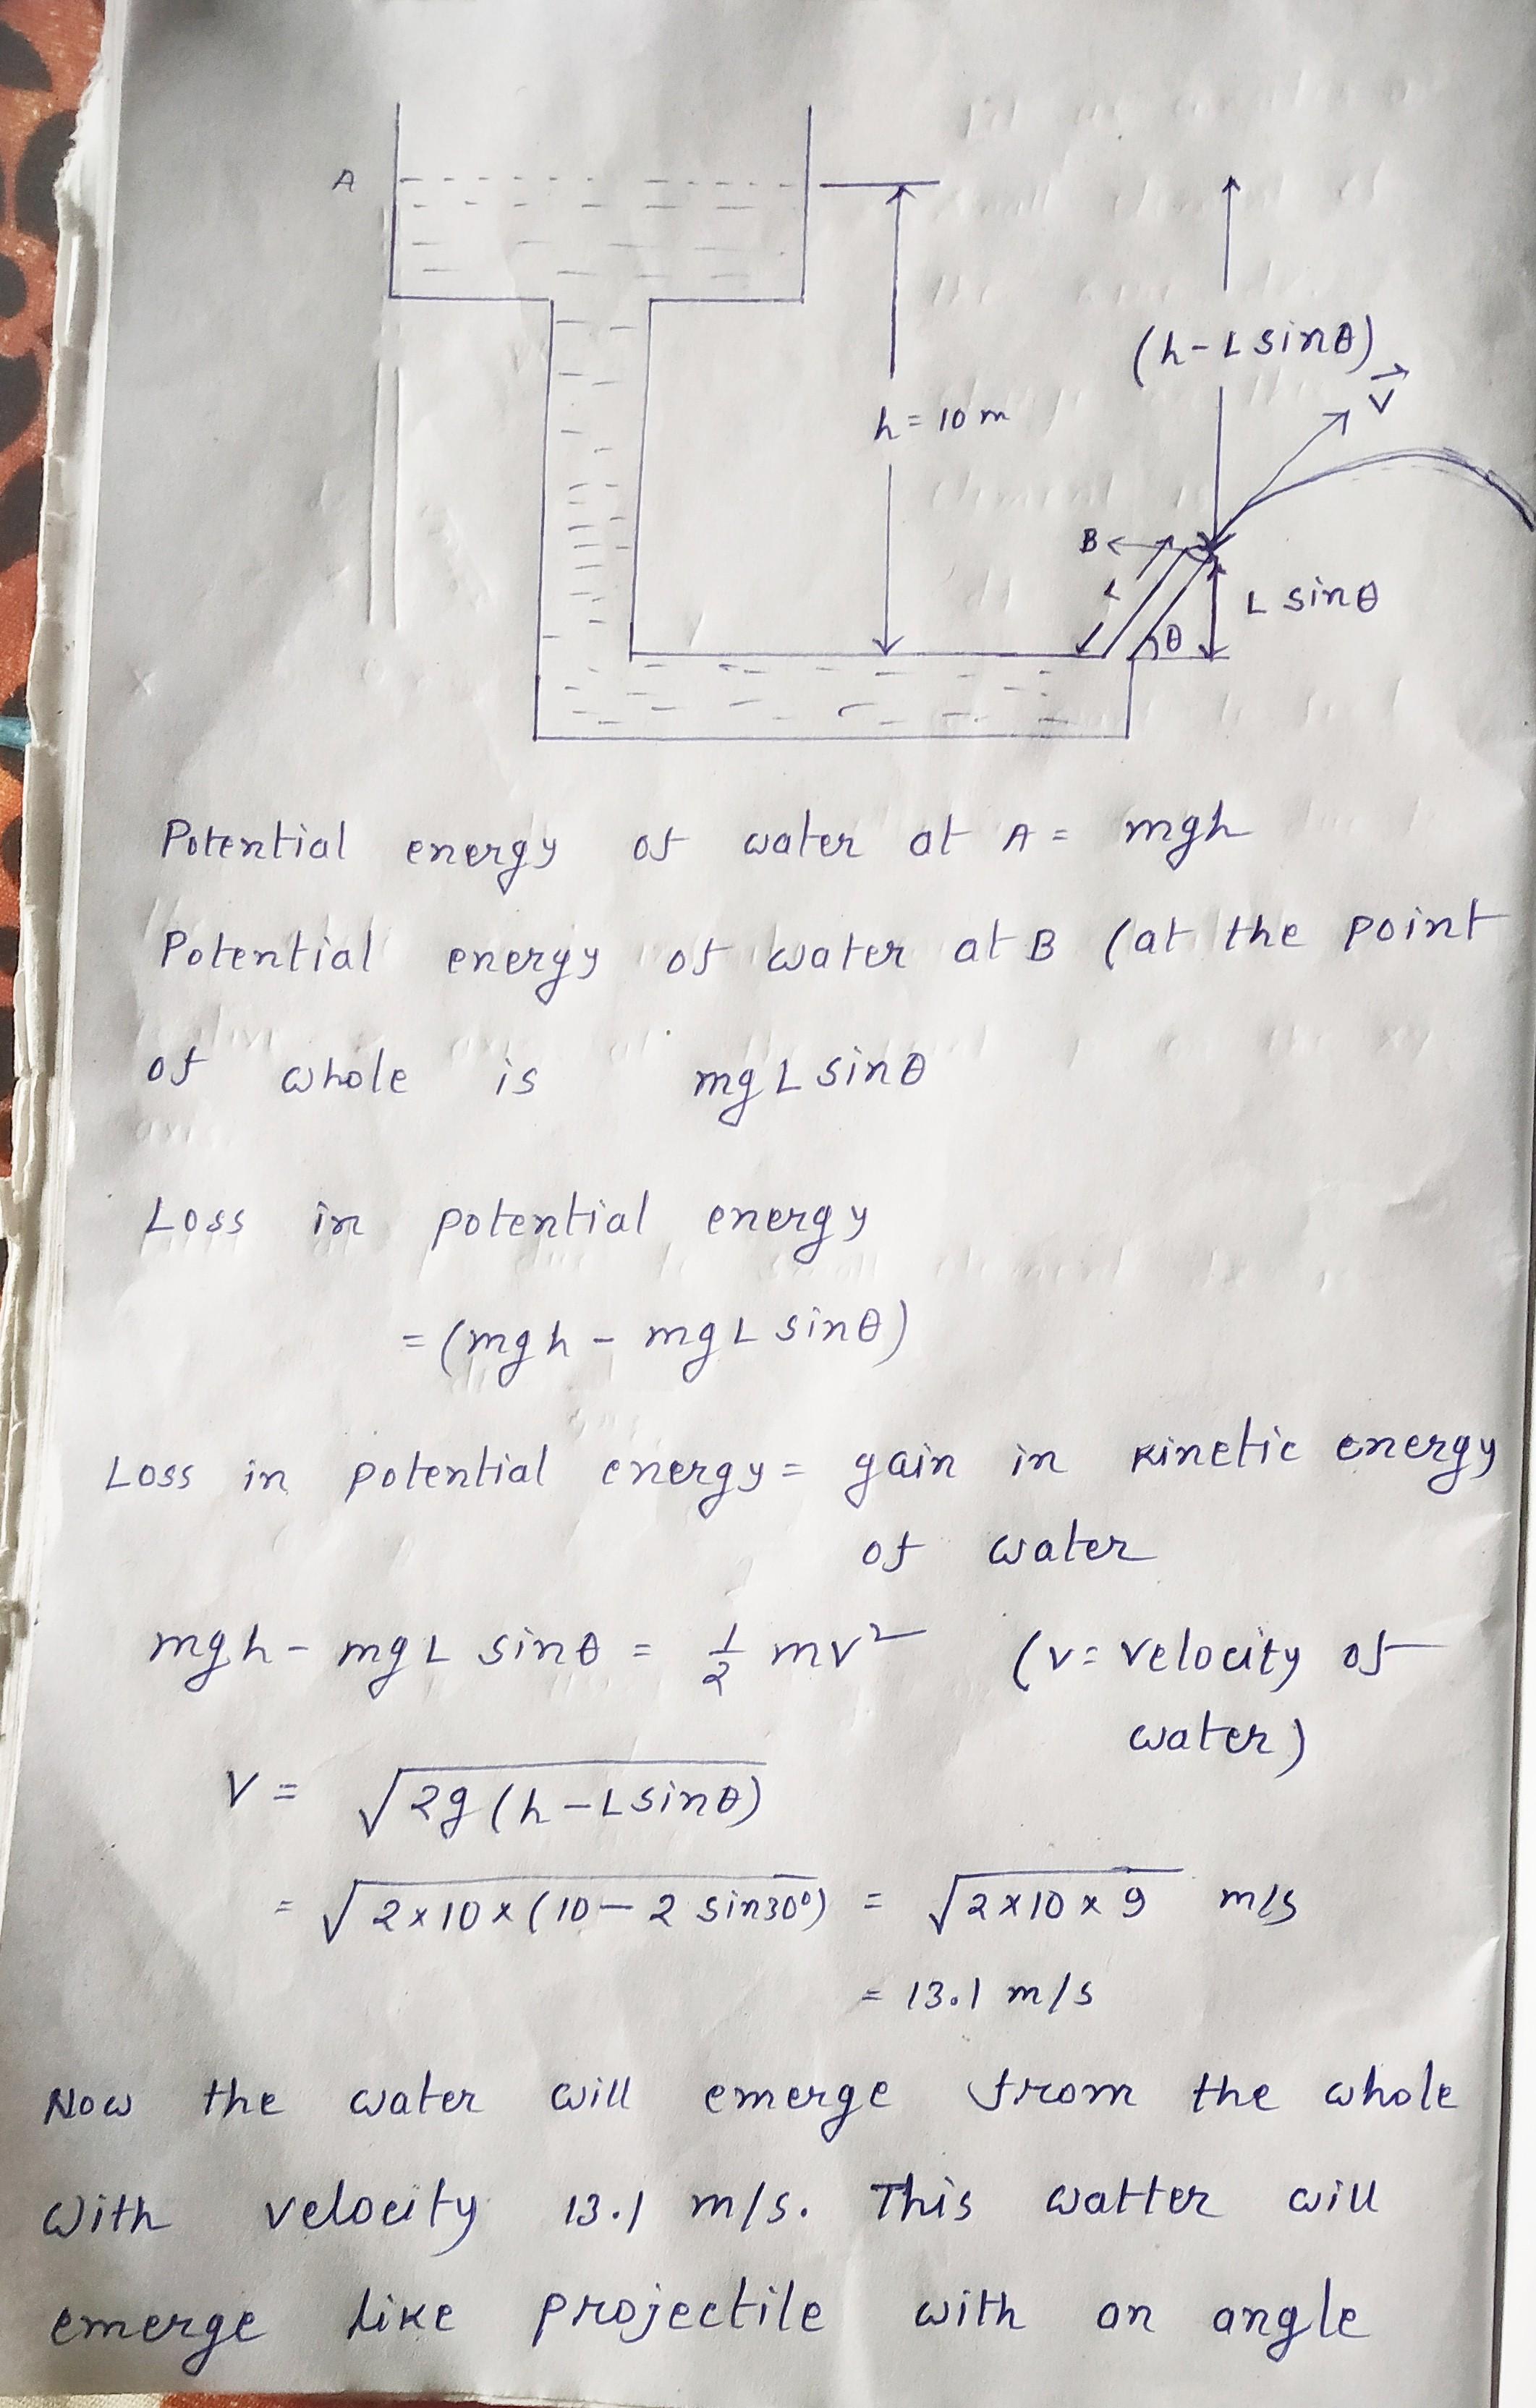 A
h = 10 m
(h - L sinθ)
V
B
L
θ
L sinθ
Potential energy of water at A = mgh
Potential energy of water at B (at the point
of whole is mg L sinθ
Loss in potential energy
= (mgh - mg L sinθ)
Loss in potential energy = gain in kinetic energy
of water
mgh - mg L sinθ = 1/2 mv² (v = velocity of
water)
V = √2g (h - L sinθ)
= √2 x 10 x (10 - 2 sin30°) = √2 x 10 x 9 m/s
= 13.1 m/s
Now the water will emerge from the whole
with velocity 13.1 m/s. This watter will
emerge like projectile with an angle